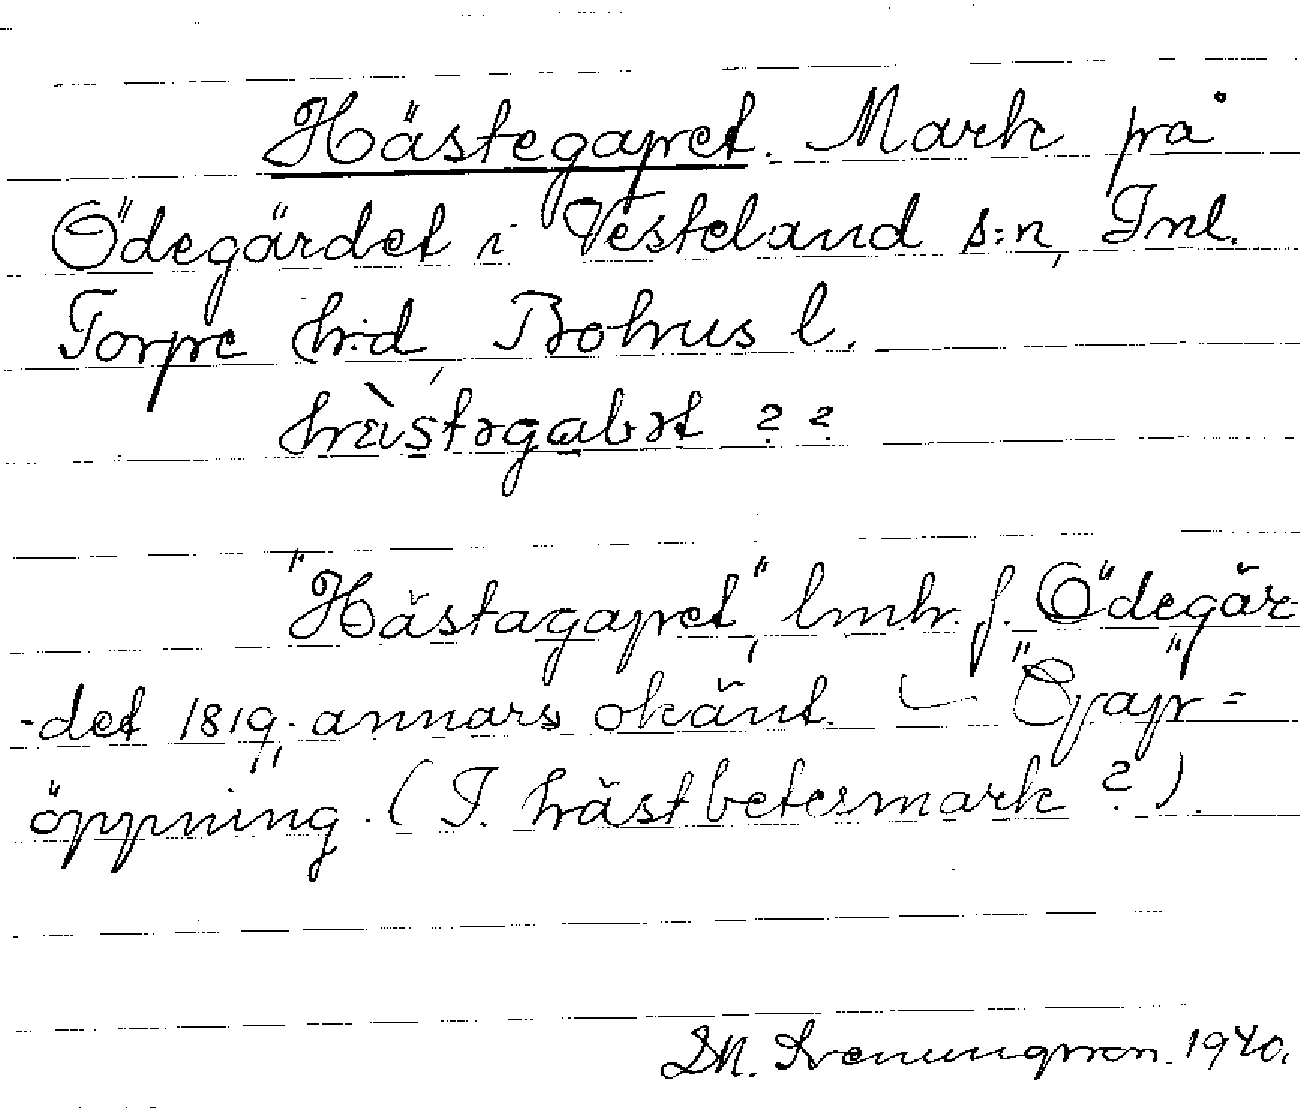 Hästegapet. Mark på
Ödegärdet i Vesteland s:n, Inl.
Torpe h:d, Bohus l.
hàstəgabət ? ?
"Hästagapet", lmh. f. Ödegär
-det 1819; annars okänt. – "Gap" =
öppning. (T. hästbetesmark ?).
1940.